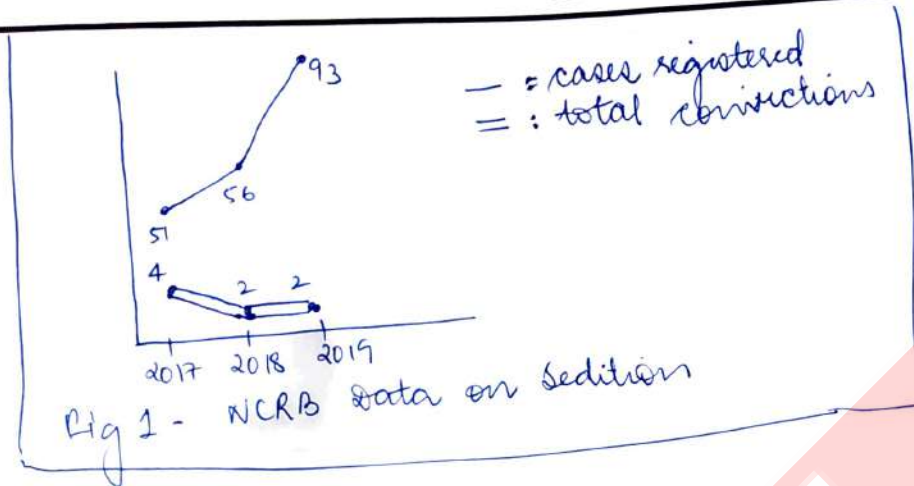 93
— : cases registered
= : total convictions
56
51
4
2 2
2017 2018 2019
Fig 1 - NCRB Data on Sedition